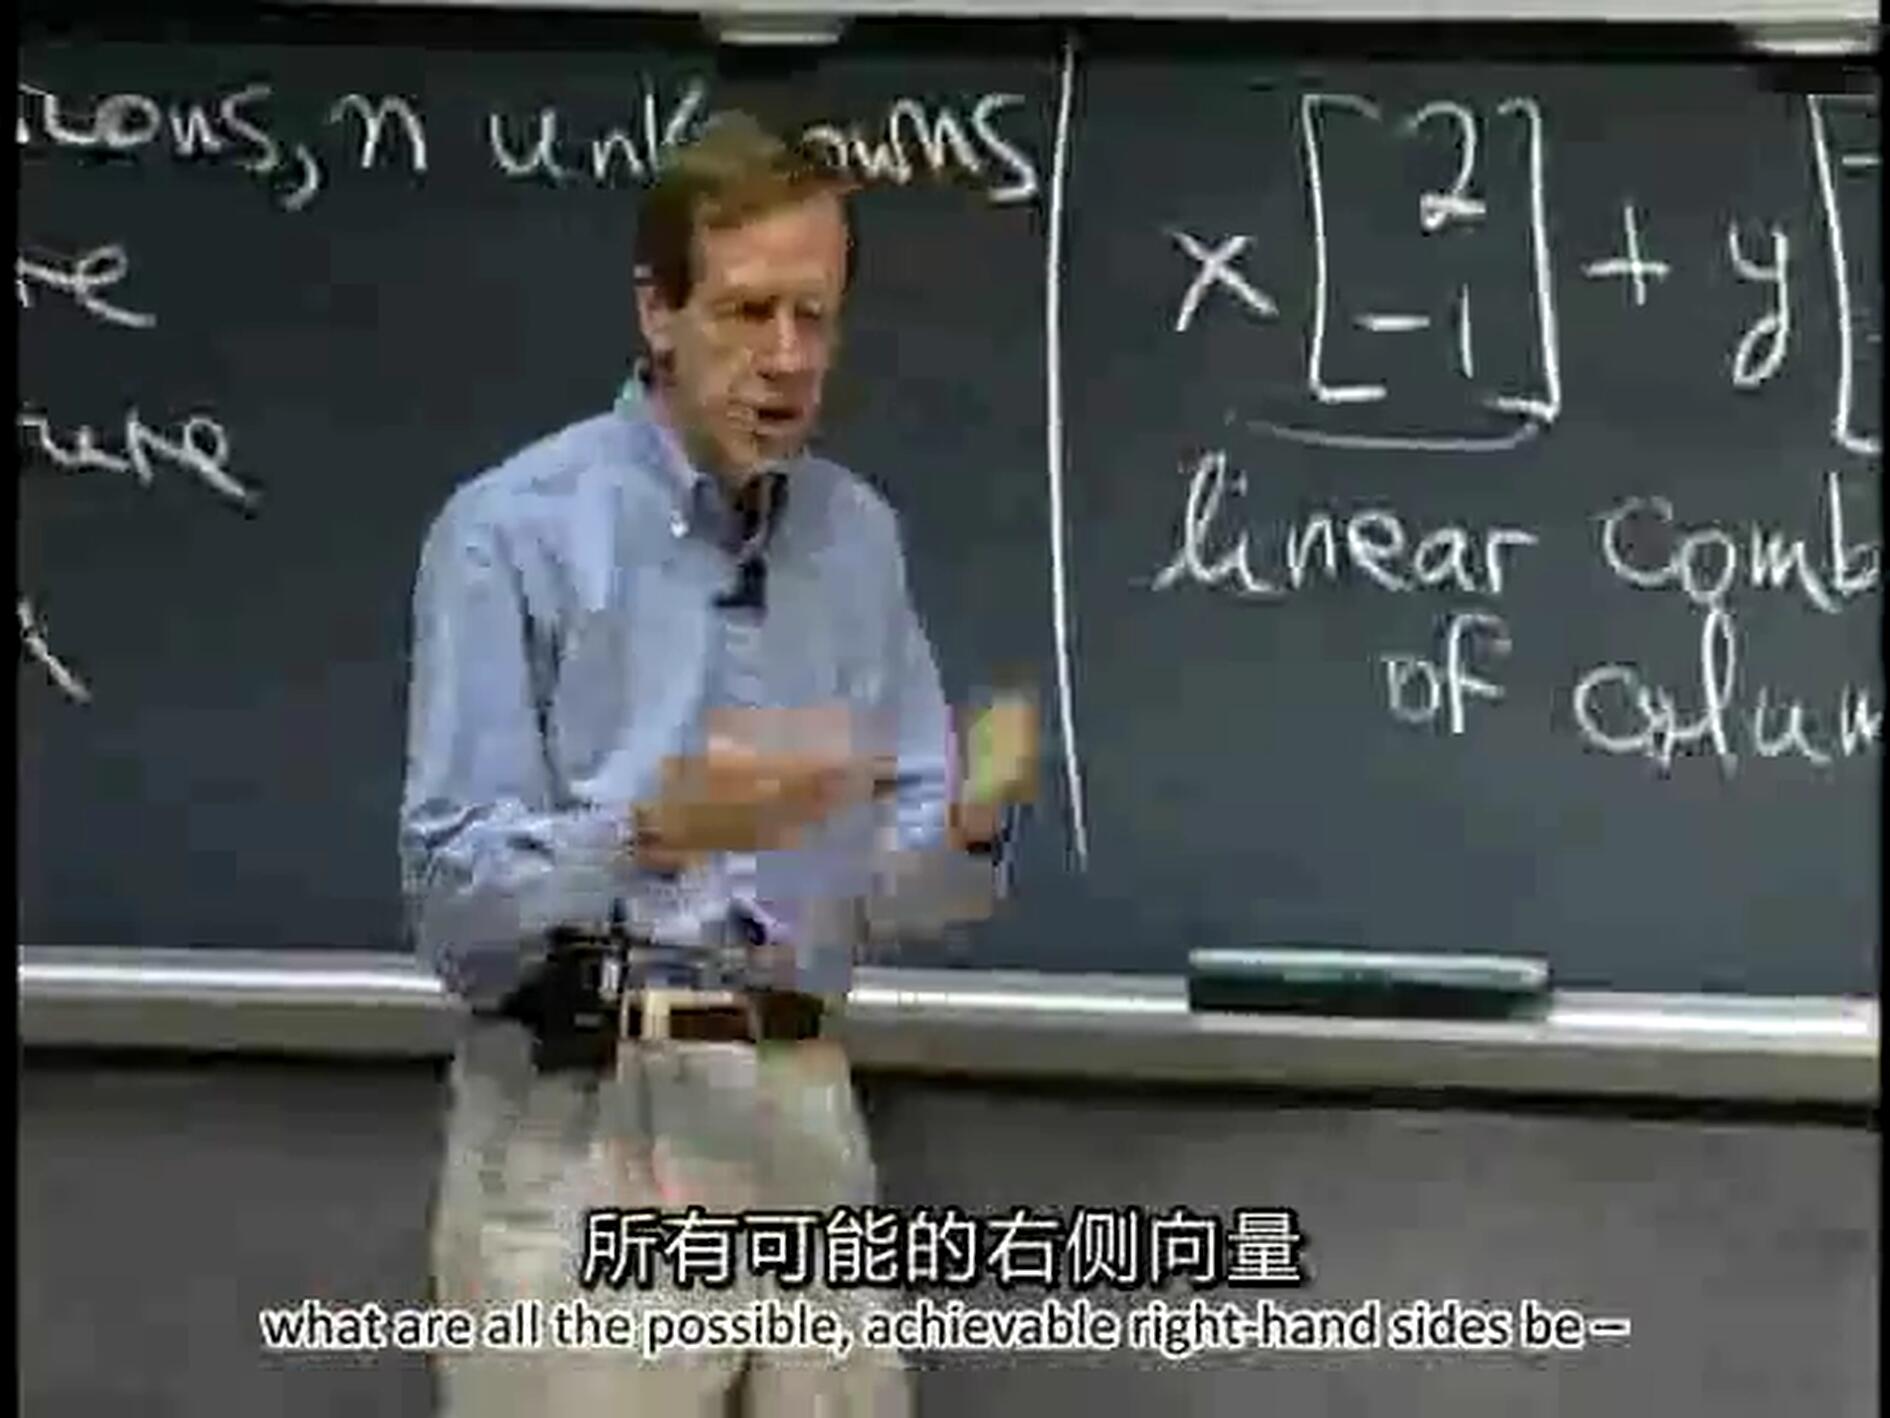 n unknowns
x [2 -1] + y [
linear comb
of colum
所有可能的右侧向量
what are all the possible, achievable right-hand sides be—